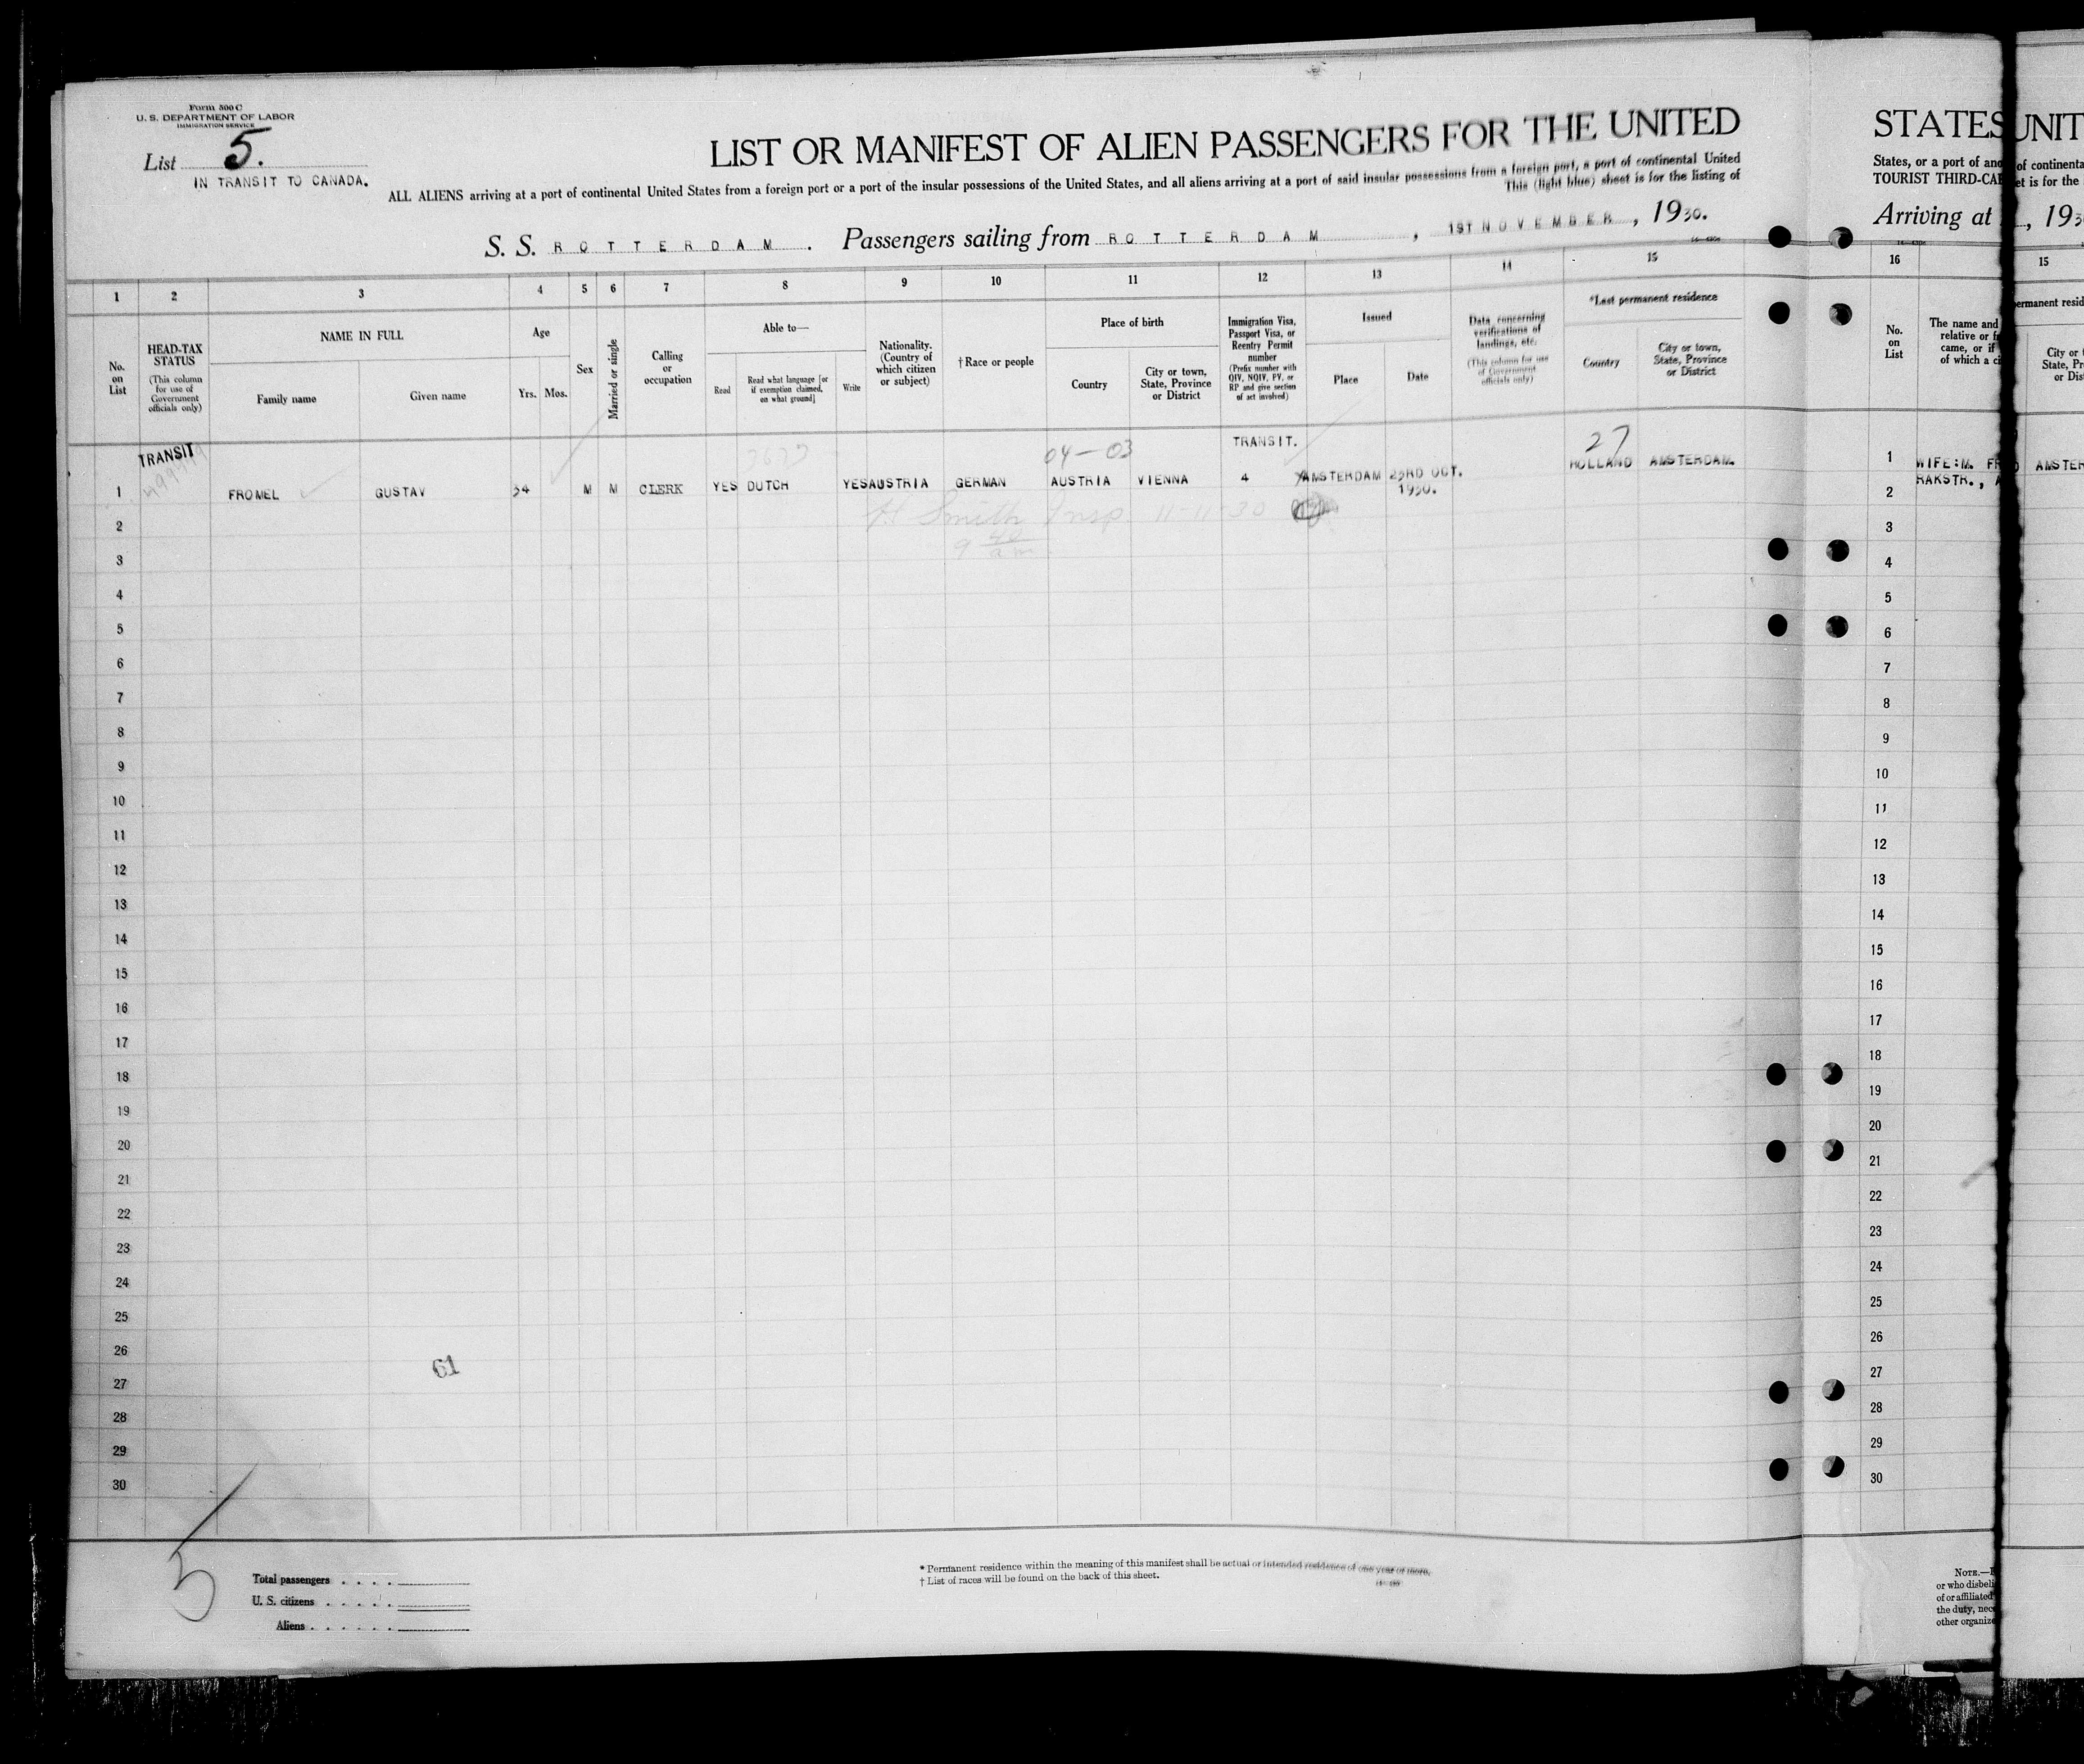 Form 500 C
U. S. DEPARTMENT OF LABOR
IMMIGRATION SERVICE
List 5.
IN TRANSIT TO CANADA.
LIST OR MANIFEST OF ALIEN PASSENGERS FOR THE UNITED
ALL ALIENS arriving at a port of continental United States from a foreign port or a port of the insular possessions of the United States, and all aliens arriving at a port of said insular possessions from a foreign port, a port of continental United
This (light blue) sheet is for the listing of
S. S. ROTTERDAM. Passengers sailing from ROTTERDAM, 1ST NOVEMBER, 1930.
1 2 3 4 5 6 7 8 9 10 11 12 13 14 15
No. on List
HEAD-TAX STATUS
(This column for use of Government officials only)
NAME IN FULL
Family name
Given name
Age
Yrs. Mos.
Sex
Married or single
Calling or occupation
Able to—
Read
Read what language [or if exemption claimed, on what ground]
Write
Nationality. (Country of which citizen or subject)
† Race or people
Place of birth
Country
City or town, State, Province or District
Immigration Visa, Passport Visa, or Reentry Permit number
(Prefix number with QIV, NQIV, PV, or RP and give section of act involved)
Issued
Place
Date
Data concerning verifications of landings, etc.
(This column for use of Government officials only)
*Last permanent residence
Country
City or town, State, Province or District
TRANSIT
04-03
TRANSIT.
27
1 FROMEL GUSTAV 34 M M CLERK YES DUTCH YES AUSTRIA GERMAN AUSTRIA VIENNA 4 AMSTERDAM 23RD OCT. 1930. HOLLAND AMSTERDAM.
Smith Insp 11-11-30
9 40 am
2
3
4
5
6
7
8
9
10
11
12
13
14
15
16
17
18
19
20
21
22
23
24
25
26
27
28
29
30
61
5
Total passengers
U. S. citizens
Aliens
* Permanent residence within the meaning of this manifest shall be actual or intended residence of one year or more.
† List of races will be found on the back of this sheet.
STATES
States, or a port of
TOURIST THIRD-
Arriving at
16
No. on List
The name and
relative or
came, or if
of which a
1 WIFE: M.
RAKSTR.,
2
3
4
5
6
7
8
9
10
11
12
13
14
15
16
17
18
19
20
21
22
23
24
25
26
27
28
29
30
NOTE.—
or who
of or affiliated
the duty,
other
UNIT
of
is for the
, 19
15
City or